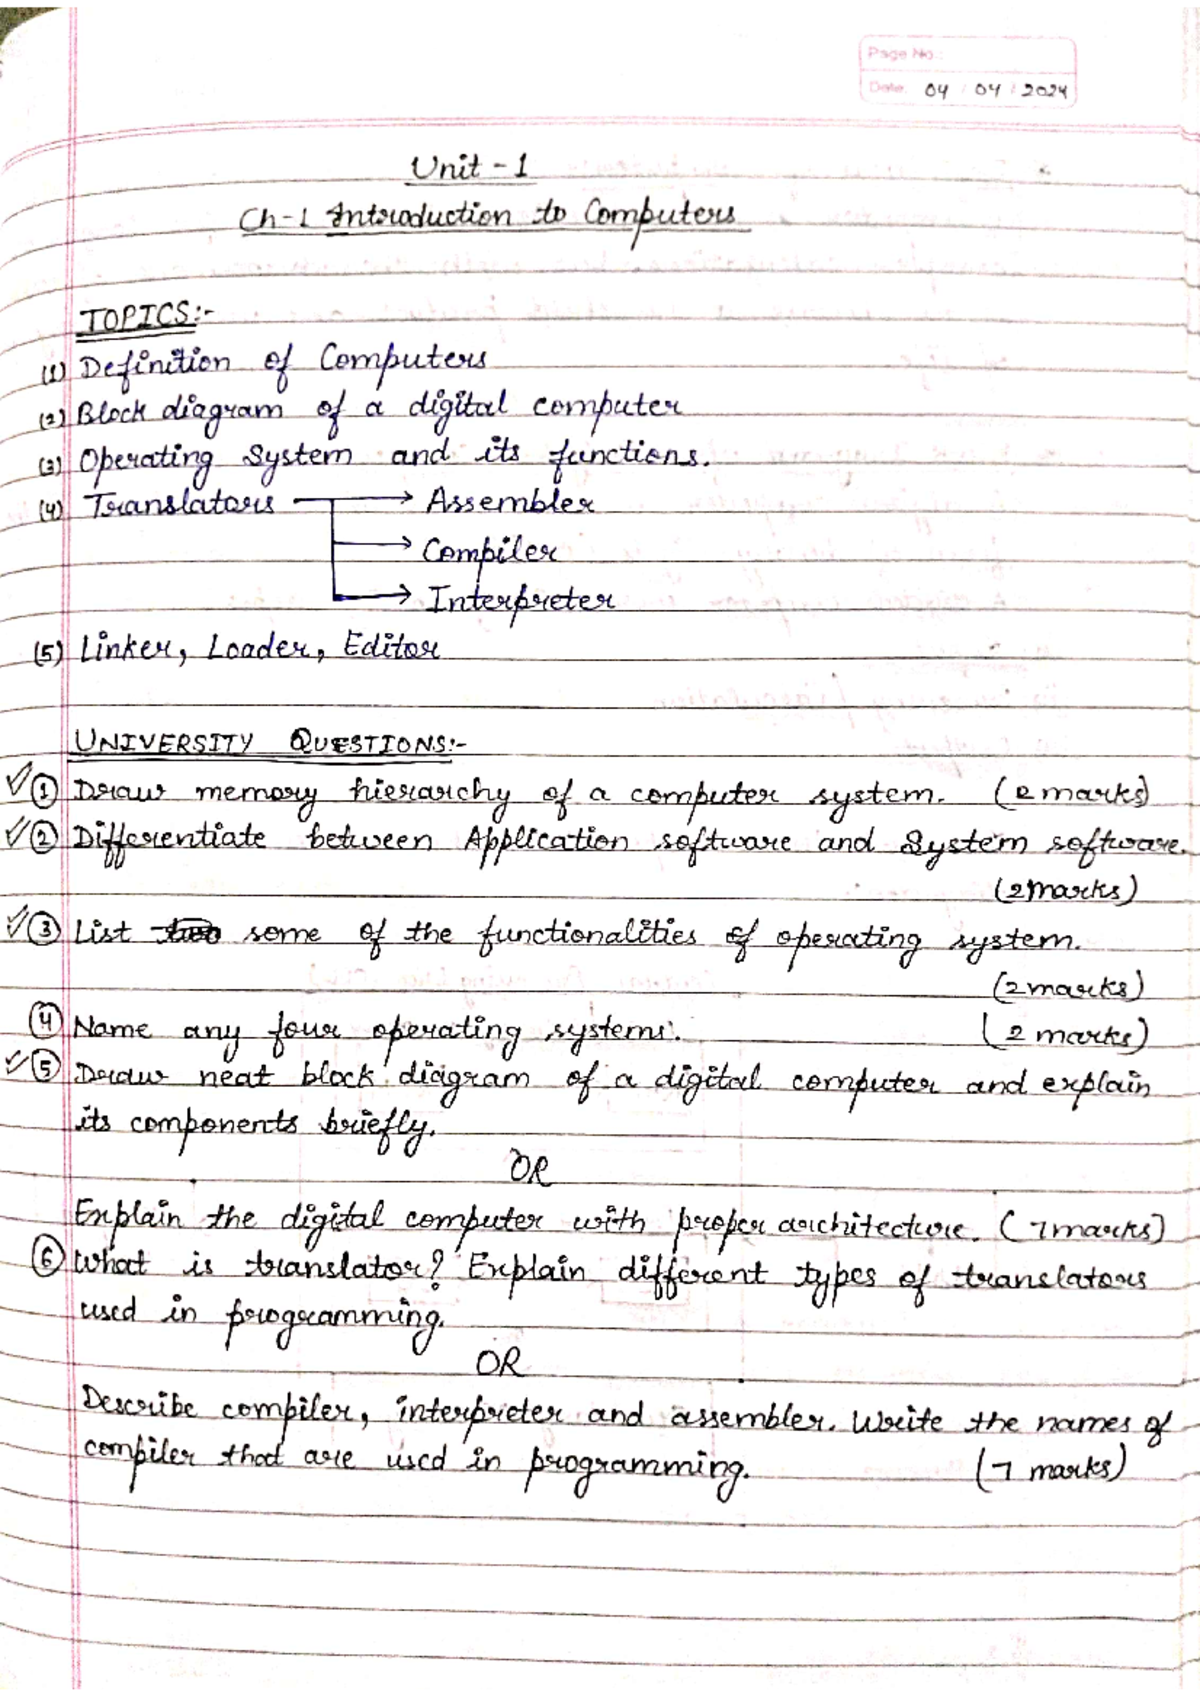 Page No.:
Date: 04 / 04 / 2024
Unit - 1
Ch-1 Introduction to Computers
TOPICS:-
(1) Definition of Computers
(2) Block diagram of a digital computer
(3) Operating System and its functions.
(4) Translators → Assembler
→ Compiler
→ Interpreter
(5) Linker, Loader, Editor
UNIVERSITY QUESTIONS:-
✓ ① Draw memory hierarchy of a computer system. (2 marks)
✓ ② Differentiate between Application software and System software.
(2 marks)
✓ ③ List some of the functionalities of operating system.
(2 marks)
④ Name any four operating systems. (2 marks)
✓ ⑤ Draw neat block diagram of a digital computer and explain
its components briefly.
OR
Explain the digital computer with proper architecture. (7 marks)
⑥ What is translator? Explain different types of translators
used in programming.
OR
Describe compiler, interpreter and assembler. Write the names of
compiler that are used in programming. (7 marks)